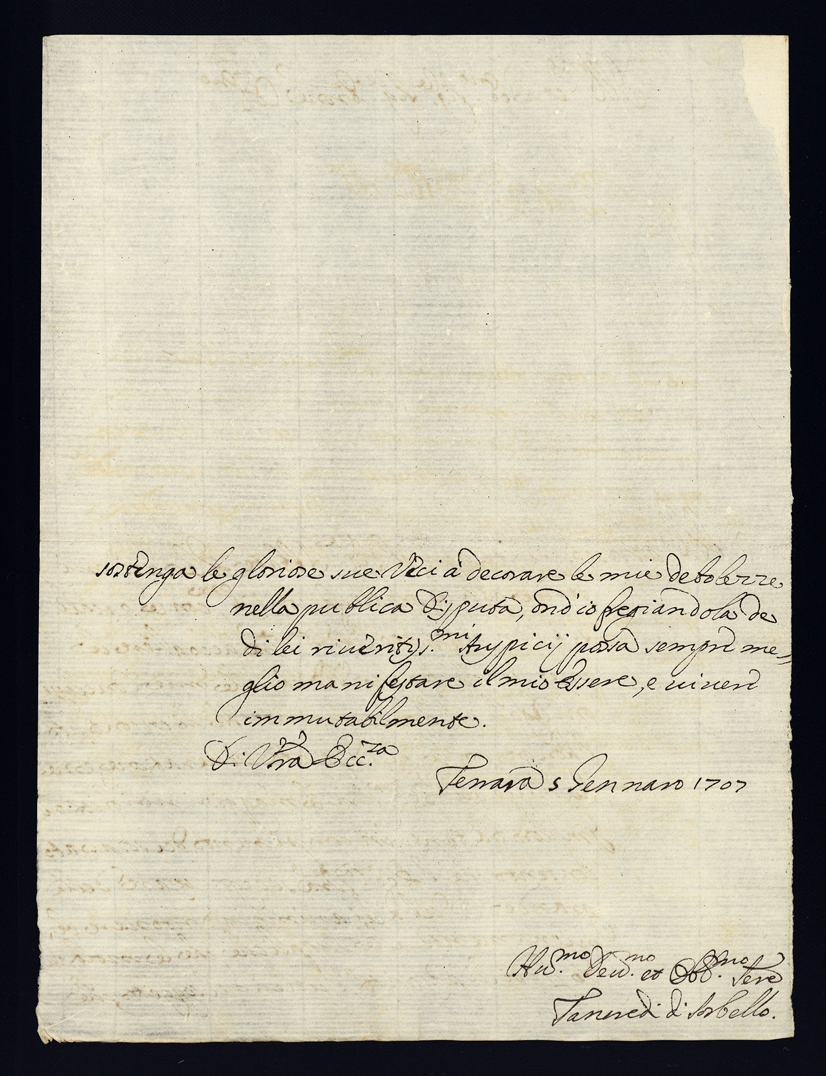 sostenga le gloriose sue Veci à decorare le mie debolezze
nella publica Disputa, ond'io fregiandola de
di lei riueritiss.mi Auspicij possa sempre me-
glio manifestare il mio essere, e uiuere
immutabilmente.
Di Vra Ecc.za
Ferrara 5 Gennaro 1707
Hu.mo Deu.mo et Obb.mo Sere
Tancredi di Sorbello.